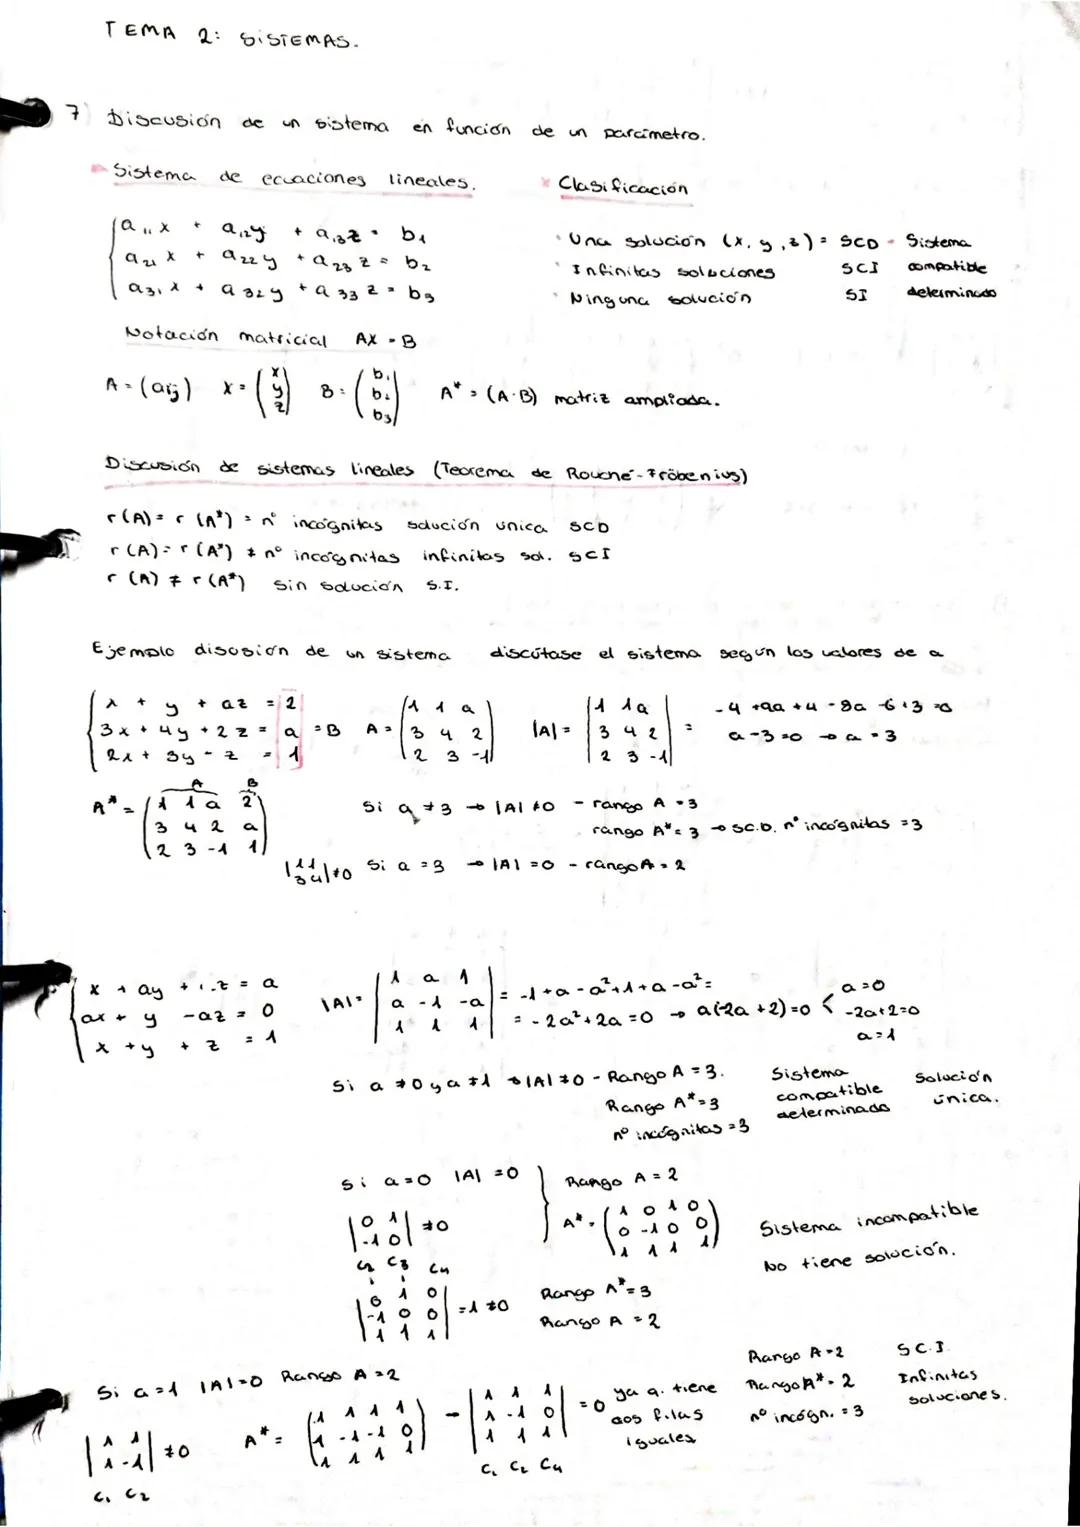 TEMA 2: SISTEMAS.
7) Discusión de un sistema en función de un parámetro.
Sistema de ecuaciones lineales.
x Clasificación
a₁₁x + a₁₂y + a₁₃z = b₁
a₂₁x + a₂₂y + a₂₃z = b₂
a₃₁x + a₃₂y + a₃₃z = b₃
· Una solución (x, y, z) = SCD - Sistema compatible determinado
· Infinitas soluciones SCI
· Ninguna solución SI
Notación matricial AX = B
A = (aij) X = (x y z) B = (b₁ b₂ b₃) A* = (A·B) matriz ampliada.
Discusión de sistemas lineales (Teorema de Rouché-Fröbenius)
r(A) = r(A*) = nº incógnitas solución única SCD
r(A) = r(A*) ≠ nº incógnitas infinitas sol. SCI
r(A) ≠ r(A*) sin solución S.I.
Ejemplo disosión de un sistema discútase el sistema según los valores de a
x + y + az = 2
3x + 4y + 2z = a = B
2x + 3y - z = 1
A = (1 1 a
3 4 2
2 3 -1)
|A| = |1 1 a
3 4 2
2 3 -1| =
-4 +9a +4 -8a -6 +3 = 0
a - 3 = 0 → a = 3
A B
A* = (1 1 a 2
3 4 2 a
2 3 -1 1)
Si a ≠ 3 → |A| ≠ 0 - rango A = 3
rango A* = 3 → S.C.D. nº incógnitas = 3
|1 1
3 4| ≠ 0 Si a = 3 → |A| = 0 - rango A = 2
x + ay + 1·z = a
ax + y - az = 0
x + y + z = 1
|A| = |1 a 1
a -1 -a
1 1 1|
= -1 + a - a² + 1 + a - a² =
= -2a² + 2a = 0 → a(-2a + 2) = 0 < a = 0
-2a + 2 = 0
a = 1
Si a ≠ 0 y a ≠ 1 → |A| ≠ 0 - Rango A = 3.
Rango A* = 3
nº incógnitas = 3
Sistema compatible determinado
Solución única.
Si a = 0 |A| = 0 } Rango A = 2
|0 1
-1 0| ≠ 0
A* = (1 0 1 0
0 -1 0 0
1 1 1 1)
Sistema incompatible
No tiene solución.
C₂ C₃ C₄
|0 1 0
-1 0 0
1 1 1| = 1 ≠ 0
Rango A* = 3
Rango A = 2
Si a = 1 |A| = 0 Rango A = 2
|1 1
1 -1| ≠ 0
C₁ C₂
A* = (1 1 1 1
1 -1 -1 0
1 1 1 1)
- |1 1 1
1 -1 0
1 1 1| = 0 ya q. tiene dos filas iguales
C₁ C₂ C₄
Rango A = 2
Rango A* = 2
nº incógn. = 3
S.C.I.
Infinitas
soluciones.